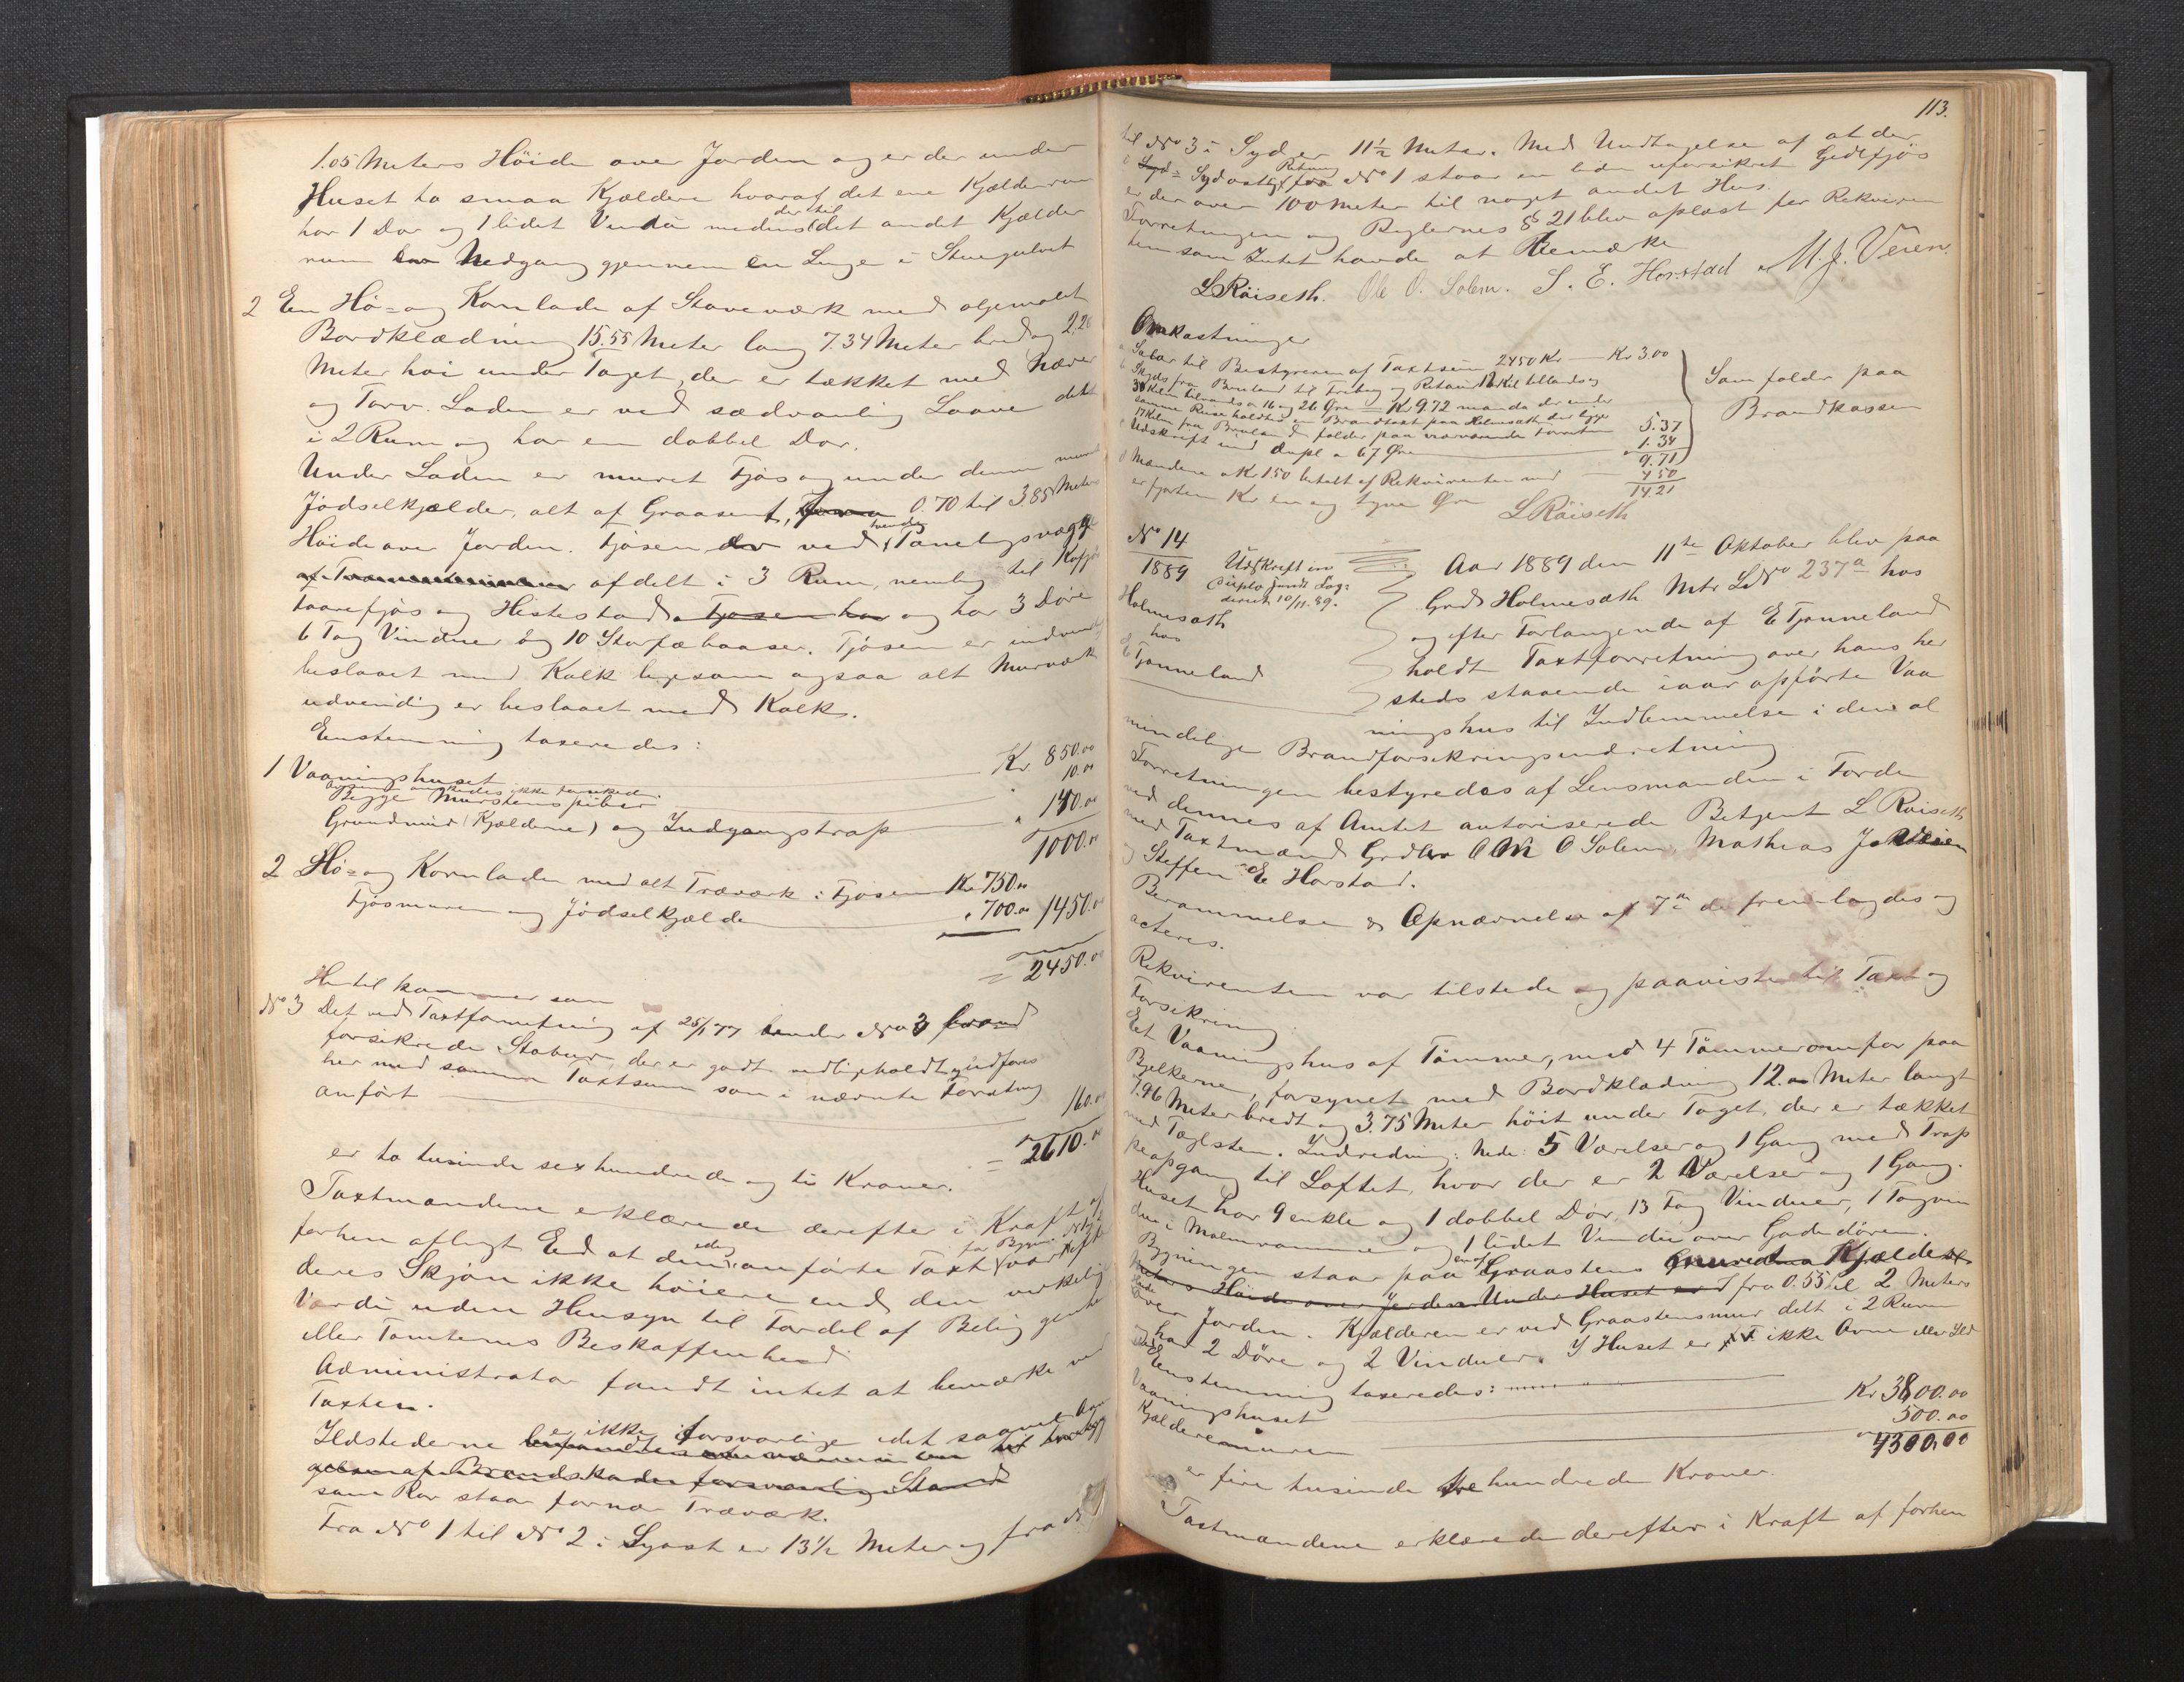 1.05 Meters Höide over Jorden og er der under
Huset to smaa Kjældere hvoraf det ene Kjælderrum
har 1 Dör og 1 lidet Vindu medens der til det andet Kjælder
rum er Nedgang gjennem en Luge i Stuegulvet
2 En Hö- og Kornlade af Stavværk med oljemalet
Bordklædning 15.55 Meter lang 7.34 Meter bred og 2.20
Meter höi under Taget, der er tækket med Næver
og Torv. Laden er ved sædvanlig Laave delt
i 2 Rum og har en dobbel Dör.
Under Laden er muret Fjös og under denne muret
Jödselkjælder, alt af Graasten, 0.70 til 3.85 Meters
Höide over Jorden. Fjösen er ved tvende Panelsvægge
afdelt i 3 Rum, nemlig til Kofjös
Faarefjös og Hestestald og har 3 Döre
6 Fag Vinduer og 10 Storfæbaaser. Fjösen er indvendig
beslaaet med Kalk ligesom ogsaa alt Murværk
udvendig er beslaaet med Kalk.
Eenstemmig taxeredes:
1 Vaaningshuset Kr 850.00
Begge Murstenspiber 10.00
Grundmur (Kjældere) og Indgangstrap 140.00
1000.00
2 Hö- og Kornladen med alt Træværk i Fjösen Kr 750.00
Fjösmuren og Jödselkjælder 700.00 1450.00
= 2450.00
Hertil kommer som
No 3 Det ved Taxtforretning af 25/1 77 under No 3 brand
forsikrede Stabur, der er godt vedligeholdt og indföres
her med samme Taxtsum som i nævnte Forretning
anfört 160.00
= 2610.00
er to tusinde sex hundrede og ti Kroner.
Taxtmændene erklærede derefter i Kraft af
forhen aflagt Eed at den anförte Taxt for Bygn. var efter
deres Skjön ikke höiere end den virkelig
Værdi uden Hensyn til Fordel af Beliggenhed
eller Tomternes Beskaffenhed
Administrator fandt intet at bemærke ved
Taxten.
Ildstederne er ikke forsvarlige idet saavel
som Rör staar for nær Træværk.
Fra No 1 til No 2 i Syost er 13½ Meter og fra No
113.
til No 3 i Syd er 11½ Meter. Med Undtagelse af at der
i Sydostlig Retning fra No 1 staar en liden uforsikret Gedefjös
er der over 100 Meter til noget andet Hus.
Forretningen og Reglernes § 21 blev oplæst for Rekviren
ten som Intet havde at Bemærke
L Röiseth. Ole O. Solem. S. E. Horstad M. J. Veien.
Omkostninger
a Salær til Bestyreren af Taxtsum 2450 Kr — Kr 3.00
Som falder paa
Brandkassen
5.37
Udskrift in duplo a 67 Öre 1.34
9.71
d Mændene a Kr 1.50 betalt af Rekvirenten med 4.50
14.21
er fjorten Kr en og tyve Öre
L Röiseth
No 14
1889
Udskrift in
duplo sendt Sog:
deriet 10/11. 89.
Holmesæth
hos
E Tjønneland
Aar 1889 den 11te Oktober blev paa
Grd Holmesæth Mtr LNo 237a hos
og efter Forlangende af E Tjønneland
holdt Taxtforretning over hans her
steds staaende iaar opförte Vaa
ningshus til Indlemmelse i den al
mindelige Brandforsikringsindretning
Forretningen bestyredes af Lensmanden i Förde
ved dennes af Amtet autoriserede Betjent L Röiseth
med Taxtmænd Grdbr O O Solem, Mathias J Veien
og Steffen E Horstad.
Berammelse & Opnævnelse af 7de ds fremlagdes og
acteres.
Rekvirenten var tilstede og paaviste til Taxt og
Forsikring
Et Vaaningshus af Tömmer, med 4 Tömmeromfar paa
Bjelkerne, forsynet med Bordklædning 12.00 Meter langt
7.96 Meter bredt og 3.75 Meter höit under Taget, der er tækket
med Taglsten. Indredning: Nede: 5 Værelser og 1 Gang med Trap
peopgang til Loftet, hvor der er 2 Værelser og 1 Gang.
Huset har 9 enkle og 1 dobbel Dör, 13 Fag Vinduer, 1 Tagvin
due i Malmramme og 1 lidet Vindu over Gadedören.
Bygningen staar paa en af Graastens muret Kjælder
Meters Höide over Jorden. Under Huset er fra 0.55 til 2 Meters
Höide over Jorden. Kjælderen er ved Graastensmur delt i 2 Rum
og har 2 Döre og 2 Vinduer. I Huset er p. T. ikke Ovne eller Ild
sted
Eenstemmig taxeredes:
Vaaningshuset Kr 3800.00
Kjælderemuren 500.00
4300.00
er fire tusinde tre hundrede Kroner.
Taxtmændene erklærede derefter i Kraft af forhen